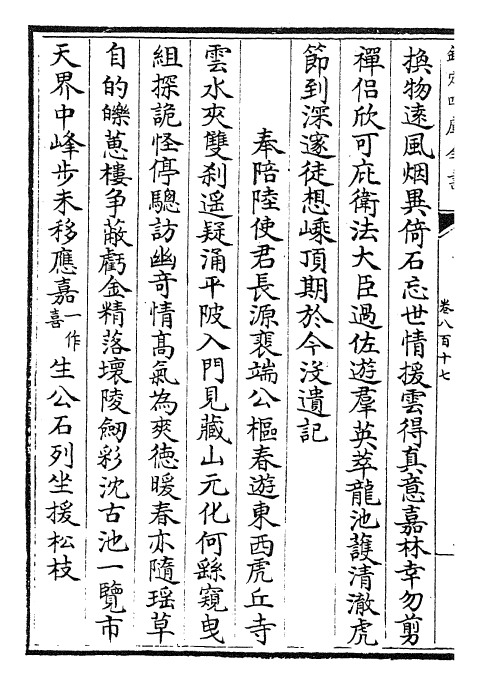 欽定四庫全書
卷八百十七
換物逺風烟異倚石忘世情援雲得真意嘉林幸勿剪
禪侣欣可庇衛法大臣過佐遊羣英萃龍池護清澈虎
節到深邃徒想嵊頂期於今没遺記
奉陪陸使君長源裴端公樞春遊東西虎丘寺
雲水夾雙刹遥疑涌平陂入門見藏山元化何繇窺曳
組探詭怪停驄訪幽奇情高氣為爽徳暖春亦隨瑶草
自的皪蕙樓争蔽虧金精落壞陵劒彩沈古池一覽市
天界中峰步未移應嘉一作喜生公石列坐援松枝